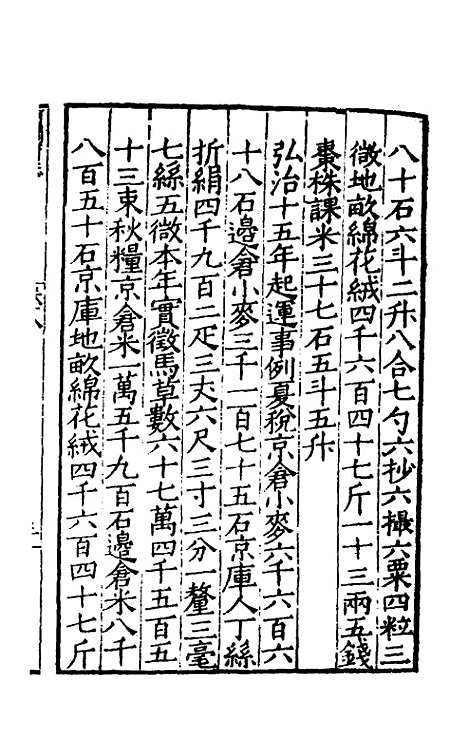 八十石六斗二升八合七勺六抄六撮六粟四粒三
徵地畝綿花絨四千六百四十七斤一十三兩五錢
棗株課米三十七石五斗五升
弘治十五年起運事例夏稅京倉小麥六千六百六
十八石邊倉小麥三千一百七十五石京庫人丁絲
折絹四千九百二疋三丈六尺三寸三分一釐三毫
七絲五微本年實徵馬草數六十七萬四千五百五
十三束秋糧京倉米一萬五千九百石邊倉米八千
八百五十石京庫地畝綿花絨四千六百四十七斤